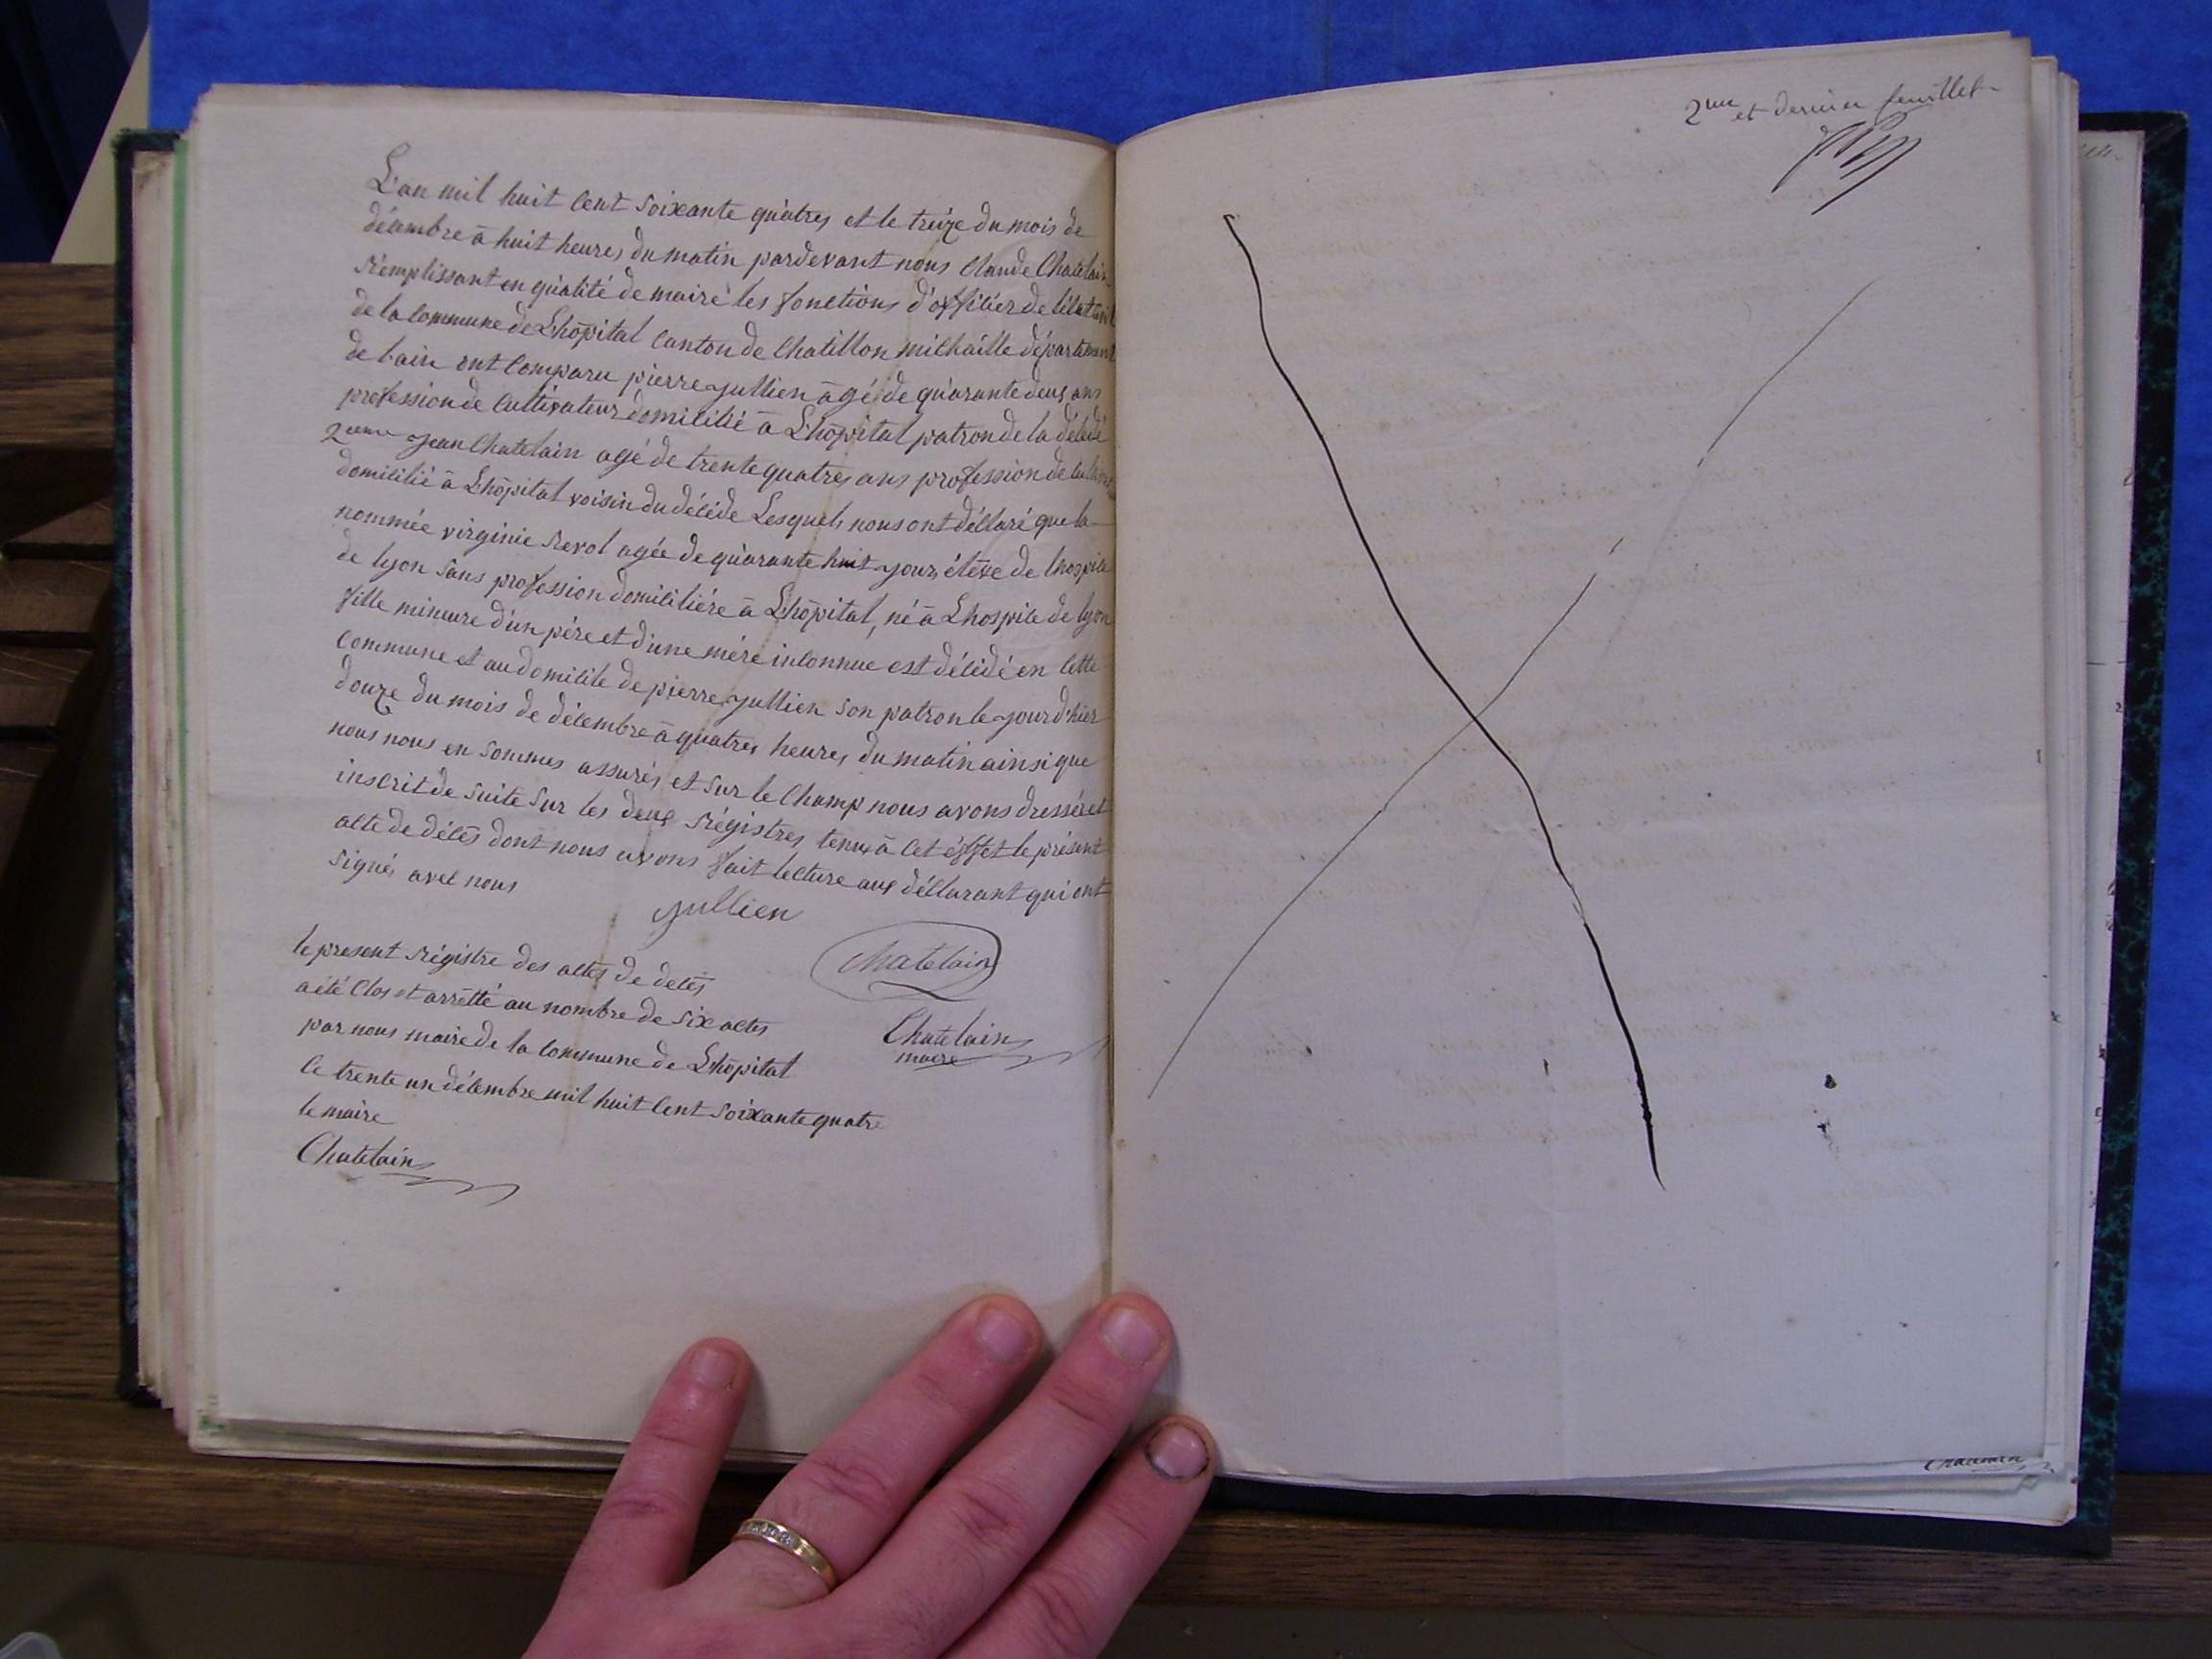 L'an mil huit Cent Soixante quatres et le treize du mois de
décembre à huit heures du matin pardevant nous Claude Chatelain
remplissant en qualité de maire les fonctions d'officier de l'état civil
de la Commune de Lhôpital Canton de Chatillon michaille département
de l'ain ont Comparu pierre jullien âgé de quarante deux ans
profession de Cultivateur domicilié à Lhôpital patron de la décédé
2eme jean Chatelain agé de trente quatres ans profession de
domicilié à Lhôpital voisin du décéde Lesquels nous ont déclaré que la
nommée virginie revol agée de quarante huit jours élève de lhospice
de lyon sans profession domicilière à Lhôpital, né à Lhospice de lyon
fille mineure d'un père et d'une mère inconnue est décédé en Cette
Commune et au domicile de pierre jullien son patron le jour d'hier
douze du mois de décembre à quatres heures du matin ainsi que
nous nous en sommes assurés et sur le Champ nous avons dressé et
inscrit de suite sur les deux régistres tenus à Cet éffet le présent
acte de décès dont nous avons fait lecture aux déclarant qui ont
signés avec nous
jullien
Chatelain
Chatelain
maire
le present régistre des actes de decès
a été Clos et arrêtté au nombre de six actes
par nous maire de la Commune de Lhôpital
Ce trente un décembre mil huit Cent soixante quatre
le maire
Chatelain
2me et dernier feuillet